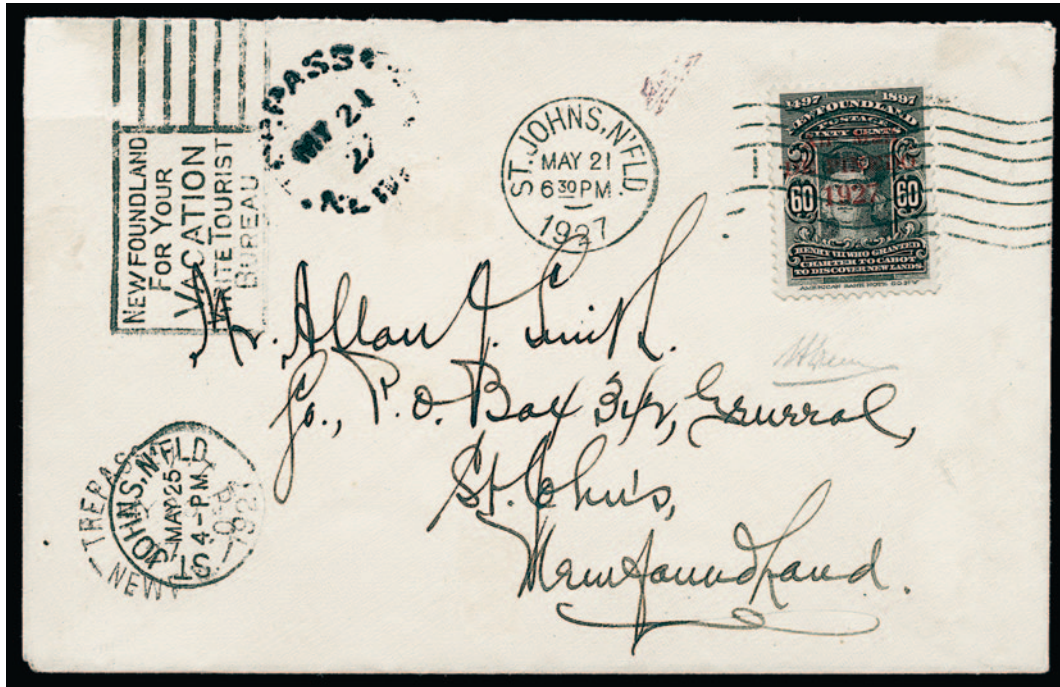 NEWFOUNDLAND
FOR YOUR
VACATION
WRITE TOURIST
BUREAU
MY 24
ST. JOHNS, N'FLD.
MAY 21
6 30 PM
1927
1497 1897
NEWFOUNDLAND
POSTAGE
SIXTY CENTS
1927
60 60
HENRY VII WHO GRANTED
CHARTER TO CABOT
TO DISCOVER NEW LANDS.
Mr. Allan J. Smith.
Co., P. O. Box
St. John's,
Newfoundland.
ST. JOHNS, N'FLD.
MAY 25
4-PM
1927
TREPASS
NEW